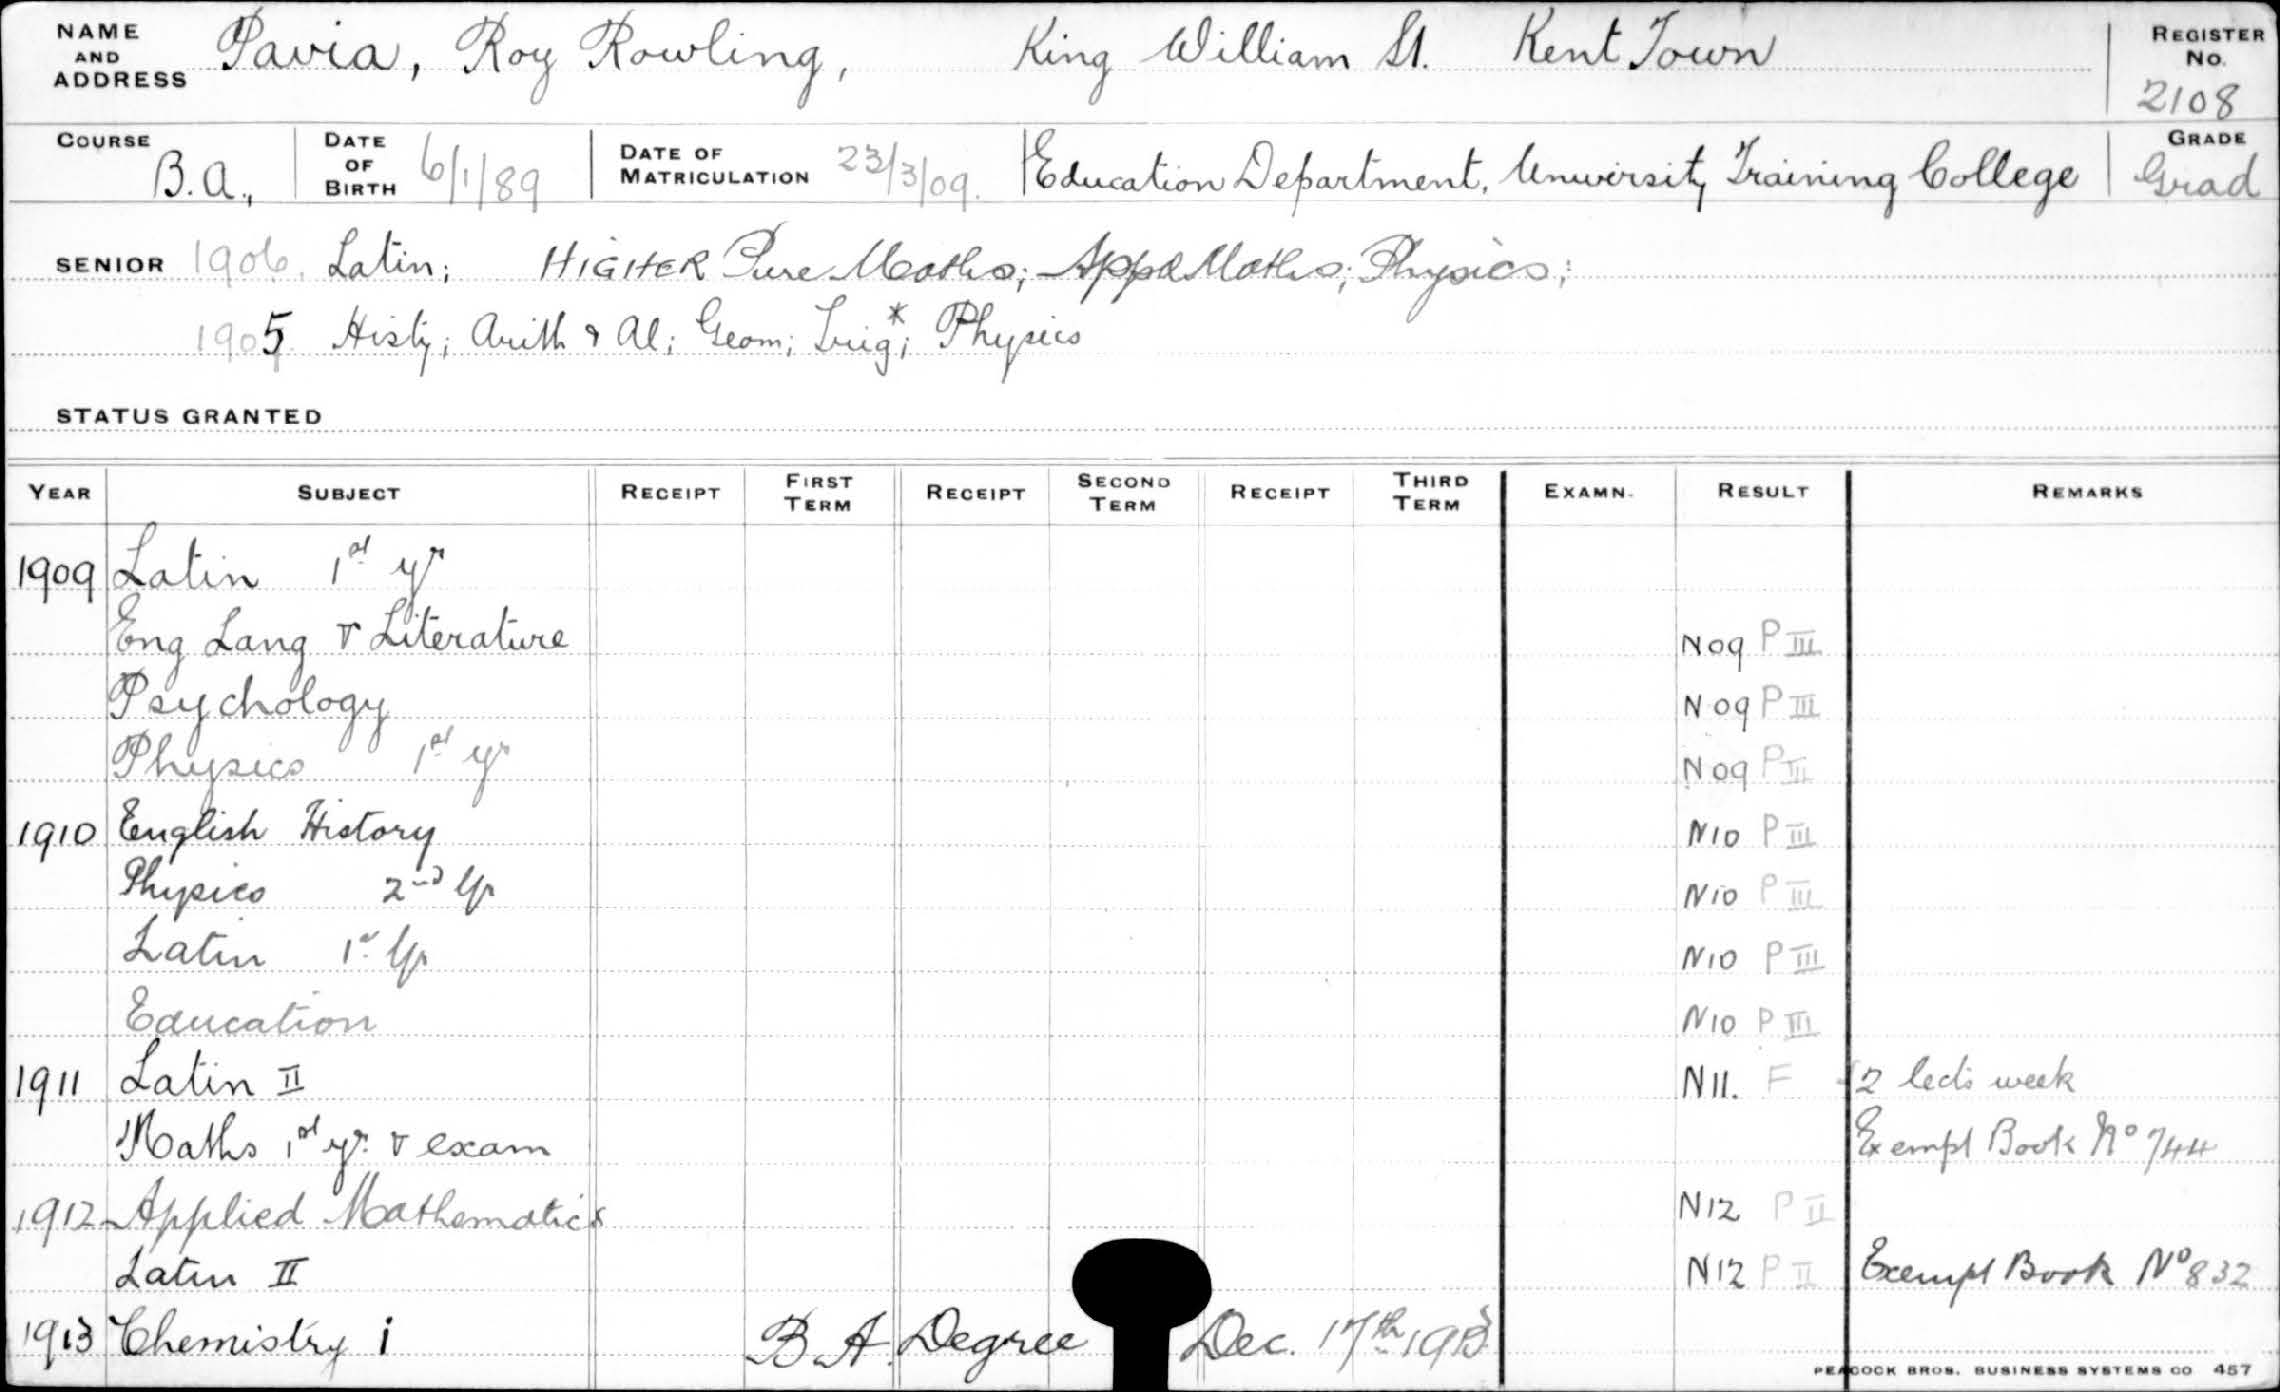 NAME AND ADDRESS Pavia, Roy Rowling, King William St. Kent Town REGISTER No. 2108
COURSE B.A., DATE OF BIRTH 6/1/89 DATE OF MATRICULATION 23/3/09. Education Department, University Training College GRADE Grad
SENIOR 1906. Latin; HIGHER Pure Maths; Appd Maths; Physics;
1905 Histy; Arith & Al; Geom; Trig*; Physics
STATUS GRANTED
YEAR SUBJECT RECEIPT FIRST TERM RECEIPT SECOND TERM RECEIPT THIRD TERM EXAMN. RESULT REMARKS
1909 Latin 1st yr
Eng Lang & Literature N09 P III
Psychology N09 P III
Physics 1st yr N09 P III
1910 English History N10 P III
Physics 2nd Yr N10 P III
Latin 1st Yr N10 P III
Education N10 P III
1911 Latin II N11. F 2 lects week
Maths 1st yr. & exam Exempt Book No 744
1912 Applied Mathematics N12 P II
Latin II N12 P II Exempt Book No 832
1913 Chemistry i B.A. Degree Dec. 17th 1913
PEACOCK BROS. BUSINESS SYSTEMS CO 457